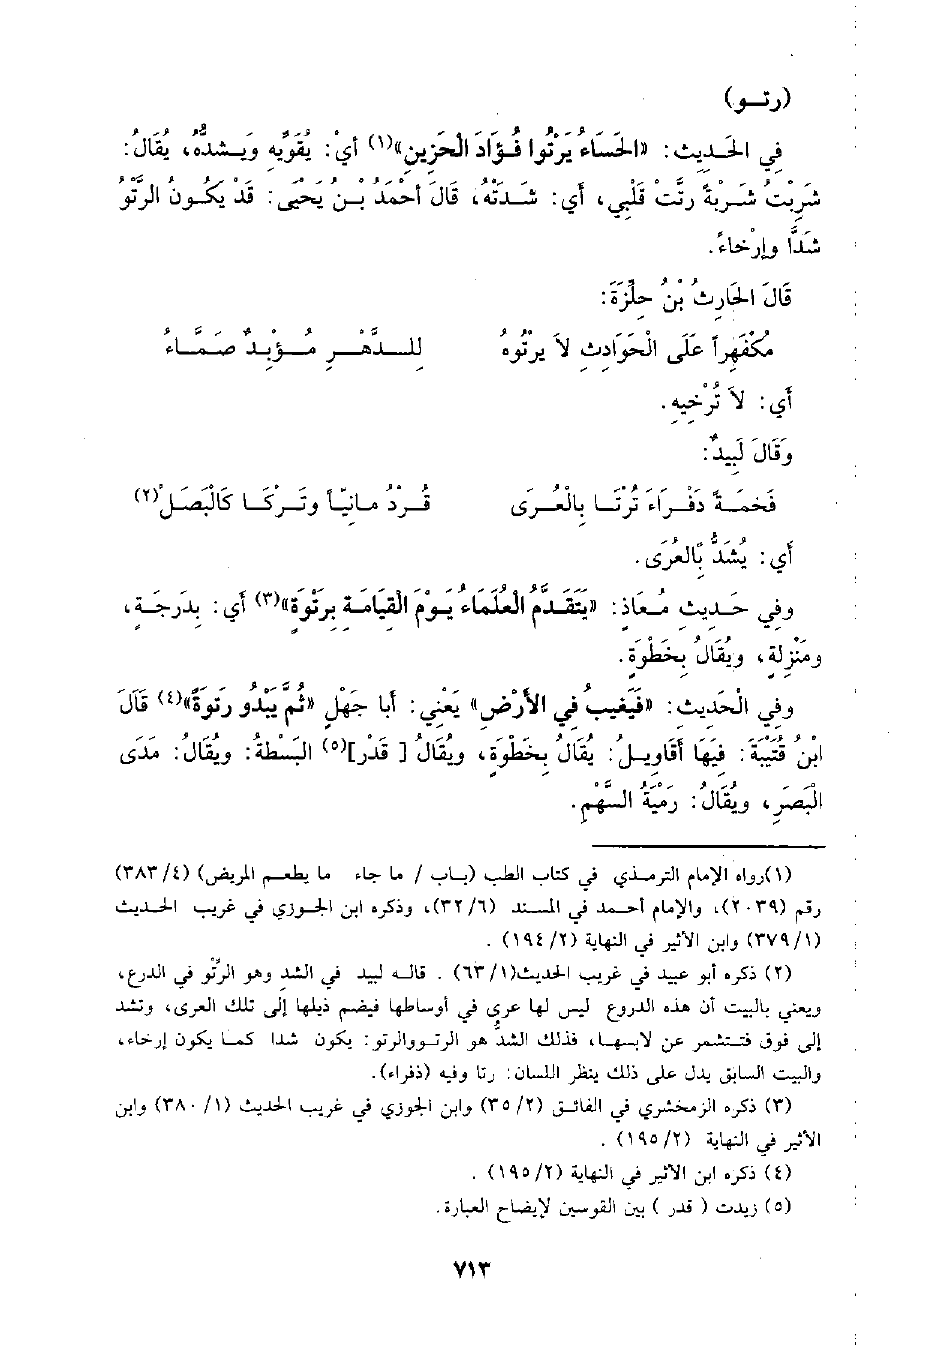 (رتـو)
في الحَـديثِ: «الحَسَاءُ يَرْتُوا فُـؤَادَ الْحَزِينِ»(١) أي: يُقَوِّيهِ وَيَـشدُّهُ، يُقَالُ:
شَرِبْتُ شَـرْبَةً رَتَتْ قَلْبِي، أي: شَـدَّتْهُ، قَالَ أحْمَدُ بْـنُ يَحْيَى: قَدْ يَكُـونُ الرَّتْوُ
شَدَّاً وإرْخَاءً.
قَالَ الحَارِثُ بْنُ حِلِّزَةَ:
مُكْفَهِراً عَلَى الْحَوَادِثِ لاَ يرْتُوهُ للـــدَّهْــرِ مُــؤْيِــدٌ صَمَّــاءُ
أَي: لاَ تُرْخِيهِ.
وَقَالَ لَبِيدٌ:
فَخمَــةً دَفْــرَاءَ تُرْتَــا بِالْعُــرَى قُــرْدُ مـانِيّـاً وتَـرْكَـا كَالْبَصَـلْ(٢)
أَي: يُشَدُّ بالعُرَى.
وفي حَـديثِ مُعَاذٍ: «يَتَقَدَّمُ العُلَمَاءُ يَـوْمَ القِيَامَـةِ بِرَتْوَةٍ»(٣) أَي: بِدَرجَـةٍ،
ومَنْزِلةٍ، ويُقَالُ بِخَطْوَةٍ.
وفي الْحَدِيثِ: «فَيَغيبُ في الأرْضِ» يَعْنِي: أبا جَهْلٍ «ثُمَّ يَبْدُو رَتوَةً»(٤) قَالَ
ابْنُ قُتَيْبَةَ: فِيهَا أقَاوِيـلُ: يُقَالُ بِخَطْوَةٍ، ويُقَالُ [ قَدْر](٥) البَسْطَةُ: ويُقَالُ: مَدَى
الْبَصَرِ، ويُقَالُ: رَمْيَةُ السَّهْمِ.
(١)رواه الإمام الترمـذي في كتاب الطب (بـاب / ما جاء ما يطعـم المريض) (٣٨٣/٤)
رقم (٢٠٣٩)، والإمام أحـمد في المسـند (٣٢/٦)، وذكره ابن الجـوزي في غريب الحـديث
(٣٧٩/١) وابن الأثير في النهاية (١٩٤/٢) .
(٢) ذكره أبو عبيد في غريب الحديث(٦٣/١) . قالـه لبيد في الشد وهو الرَّتْو في الدرع،
ويعني بالبيت أن هذه الدروع ليس لها عرى في أوساطها فيضم ذيلها إلى تلك العرى، وتشد
إلى فوق فتـتشمر عن لابسـهـا، فذلك الشدُّ هو الرتـووالرتو: يكون شدا كمـا يكون إرخاء،
والبيت السابق يدل على ذلك ينظر اللسان: رتا وفيه (ذفراء).
(٣) ذكره الزمخشري في الفائـق (٣٥/٢) وابن الجوزي في غريب الحديث (٣٨٠/١) وابن
الأثير في النهاية (١٩٥/٢) .
(٤) ذكره ابن الأثير في النهاية (١٩٥/٢) .
(٥) زيدت ( قدر ) بين القوسين لإيضاح العبارة.
٧١٣